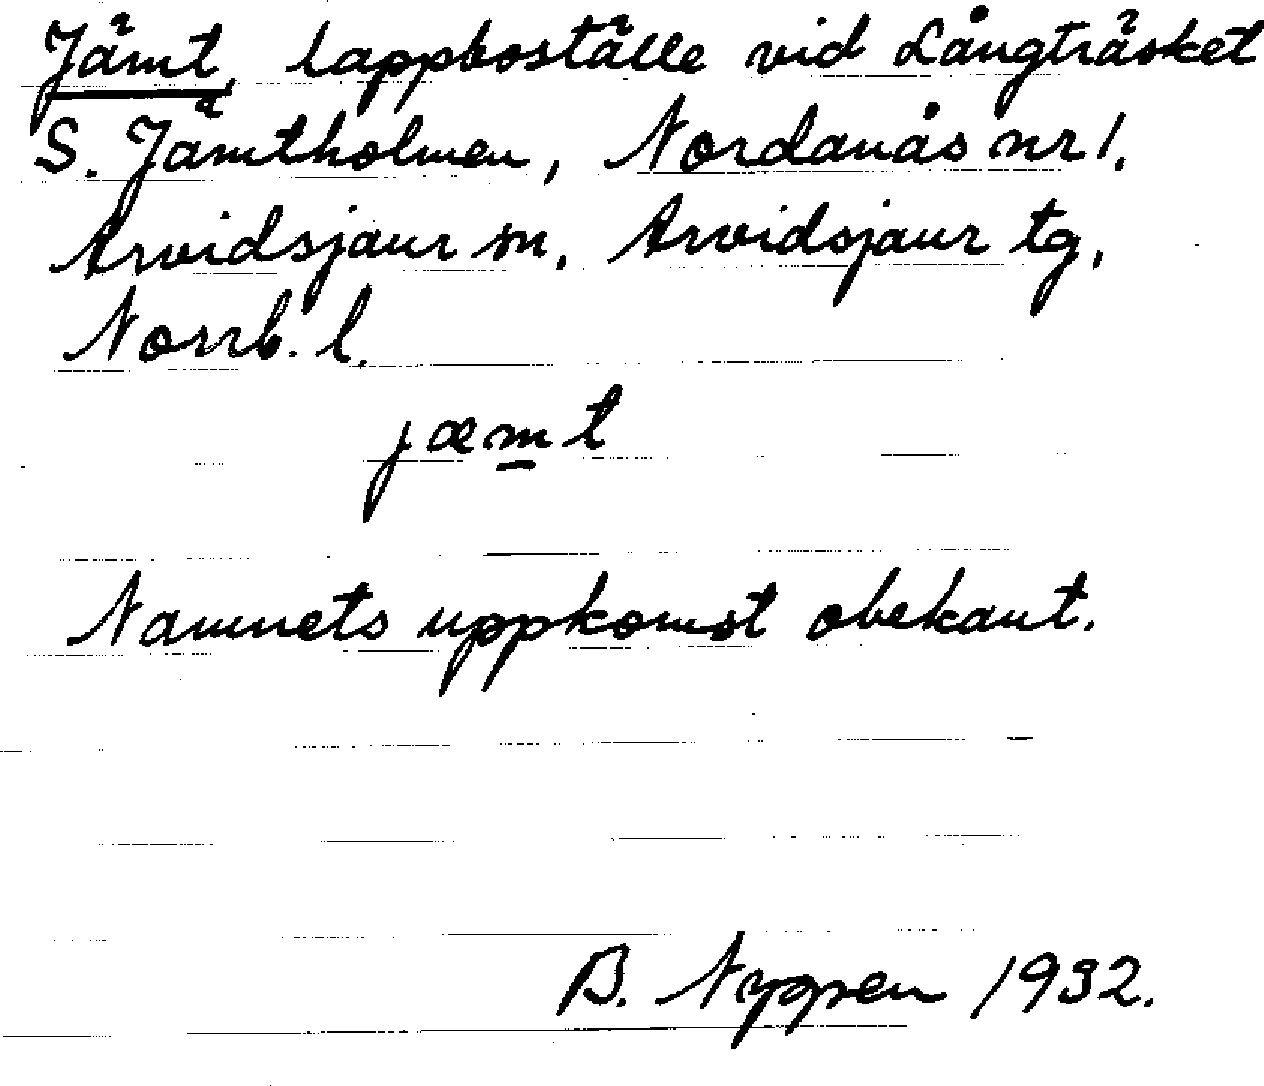 Jämt, lappboställe vid Långträsket
S. Jämtholmen, Nordanås nr 1.
Arvidsjaur sn. Arvidsjaur tg,
Norrb. l.
jæmt
Namnets uppkomst obekant.
B. Nyppen 1932.